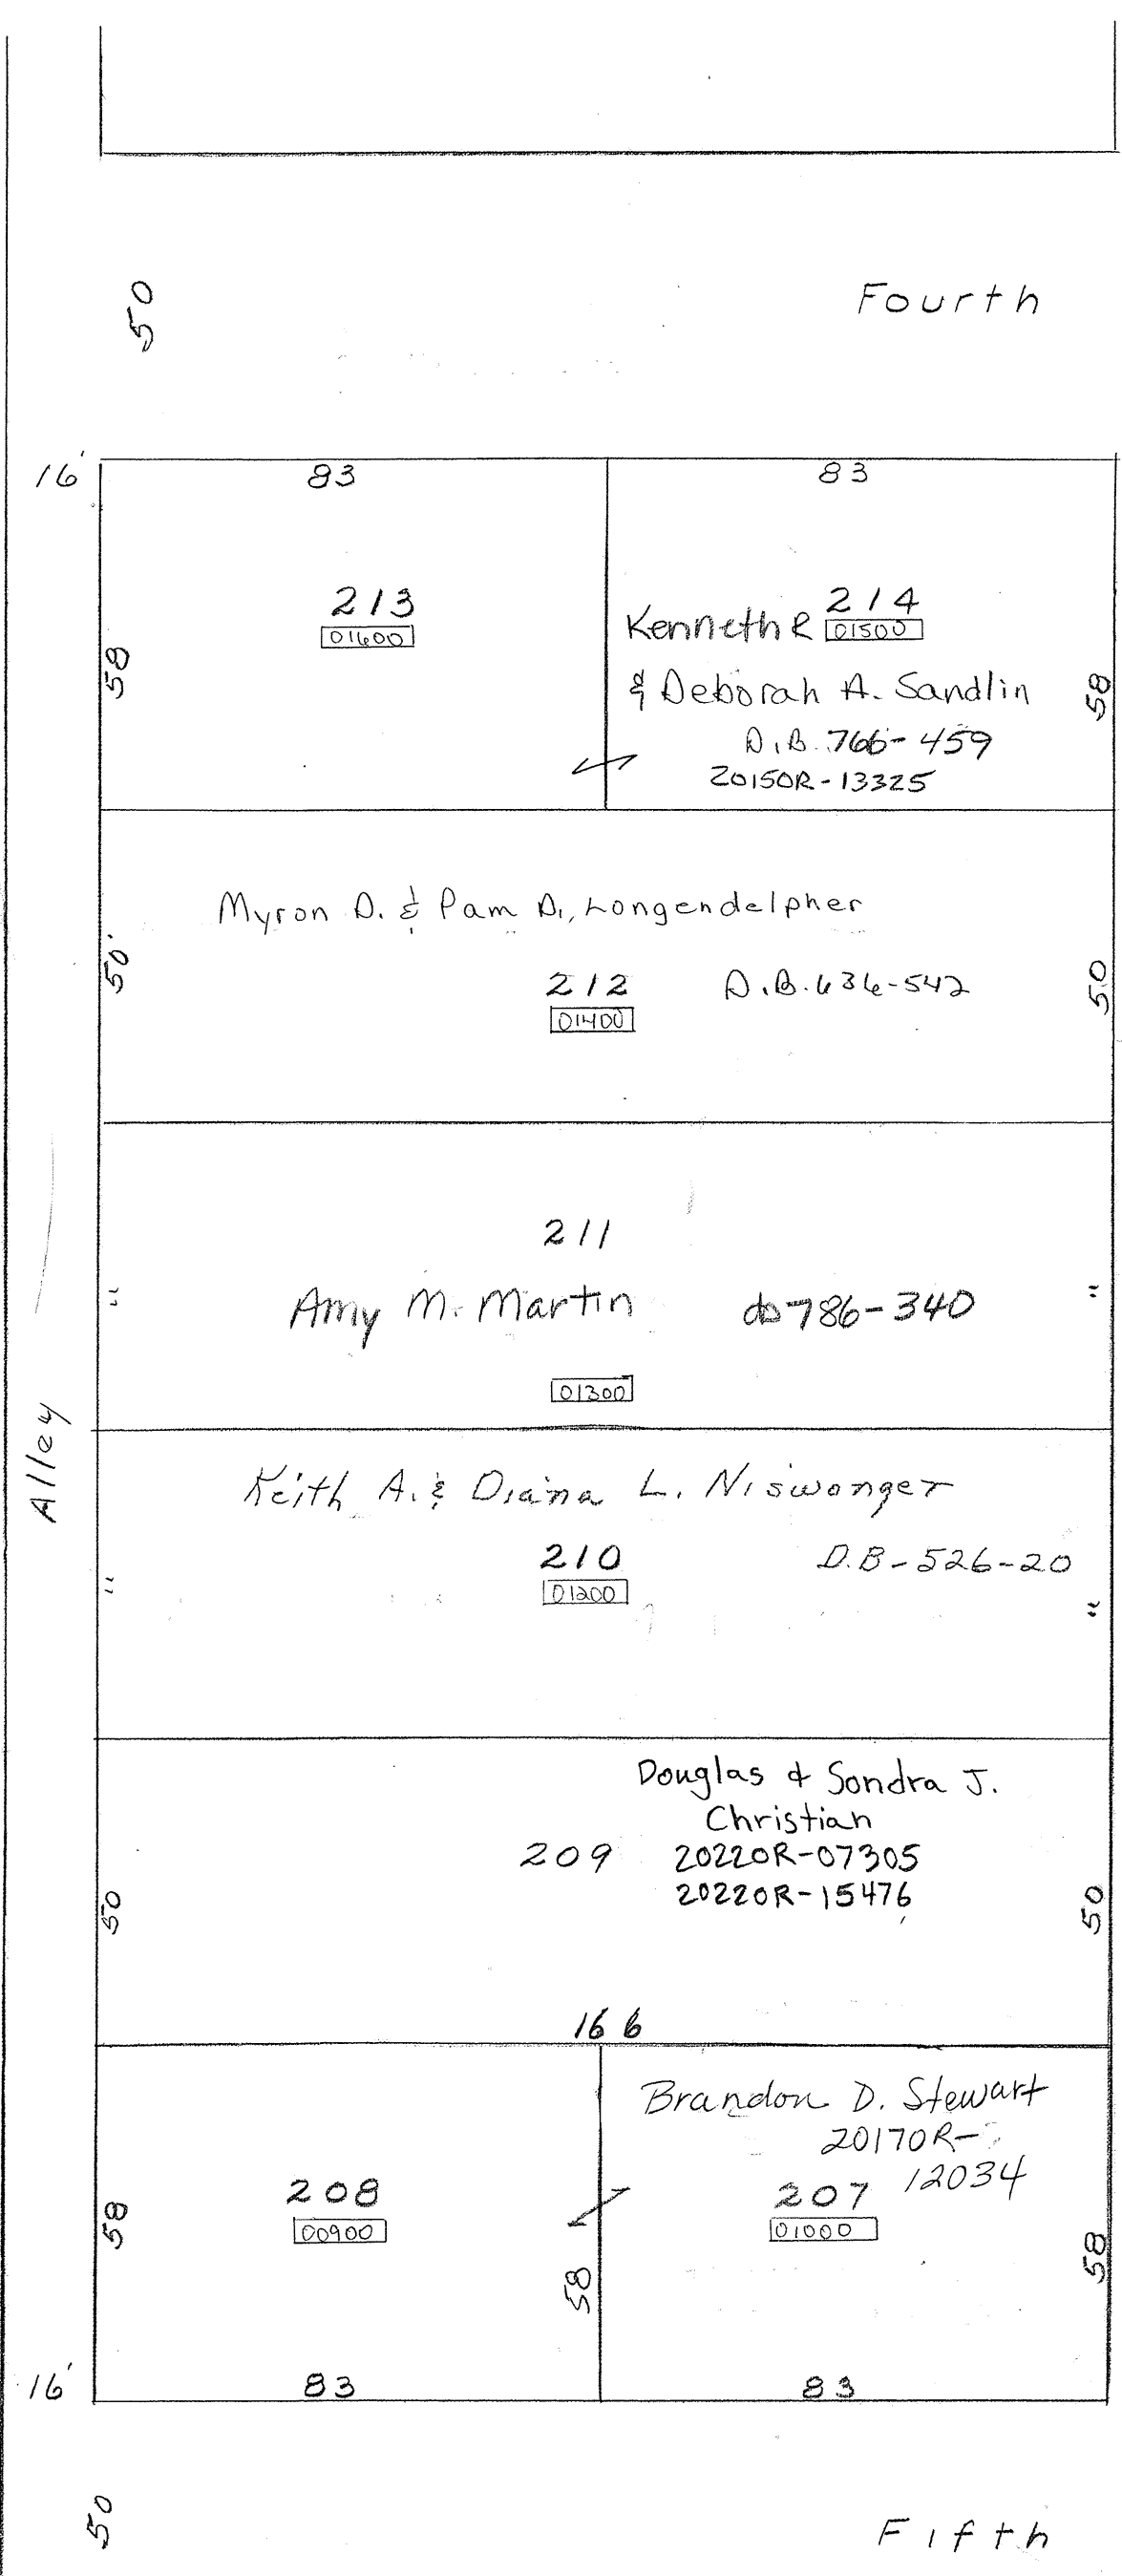 50
Fourth
16'
83
83
213
01600
58
214
Kenneth R 01500
& Deborah A. Sandlin
58
D.B. 766-459
20150R-13325
Myron D. & Pam D. Longendelpher
50'
212 D.B. 636-542
01400
50
211
" Amy M. Martin db 786-340 "
01300
Alley
Keith A. & Diana L. Niswonger
210 D.B-526-20
01200
" "
Douglas & Sondra J.
Christian
209 20220R-07305
20220R-15476
50
50
166
Brandon D. Stewart
20170R-
12034
208
00900
58
207
01000
58
58
16'
83
83
50
Fifth